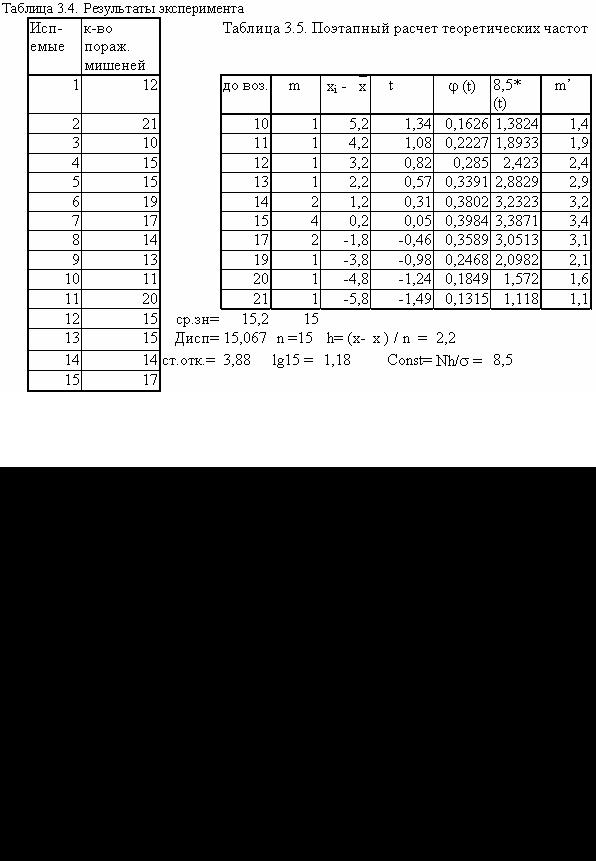 Таблица 3.4. Результаты эксперимента
Исп- к-во
емые пораж.
мишеней
1 12
2 21
3 10
4 15
5 15
6 19
7 17
8 14
9 13
10 11
11 20
12 15
13 15
14 14
15 17
Таблица 3.5. Поэтапный расчет теоретических частот
до воз. m xᵢ - x̅ t φ (t) 8,5* m’
(t)
10 1 5,2 1,34 0,1626 1,3824 1,4
11 1 4,2 1,08 0,2227 1,8933 1,9
12 1 3,2 0,82 0,285 2,423 2,4
13 1 2,2 0,57 0,3391 2,8829 2,9
14 2 1,2 0,31 0,3802 3,2323 3,2
15 4 0,2 0,05 0,3984 3,3871 3,4
17 2 -1,8 -0,46 0,3589 3,0513 3,1
19 1 -3,8 -0,98 0,2468 2,0982 2,1
20 1 -4,8 -1,24 0,1849 1,572 1,6
21 1 -5,8 -1,49 0,1315 1,118 1,1
ср.зн= 15,2 15
Дисп= 15,067 n =15 h= (x- x ) / n = 2,2
ст.отк.= 3,88 lg15 = 1,18 Const= Nh/σ = 8,5